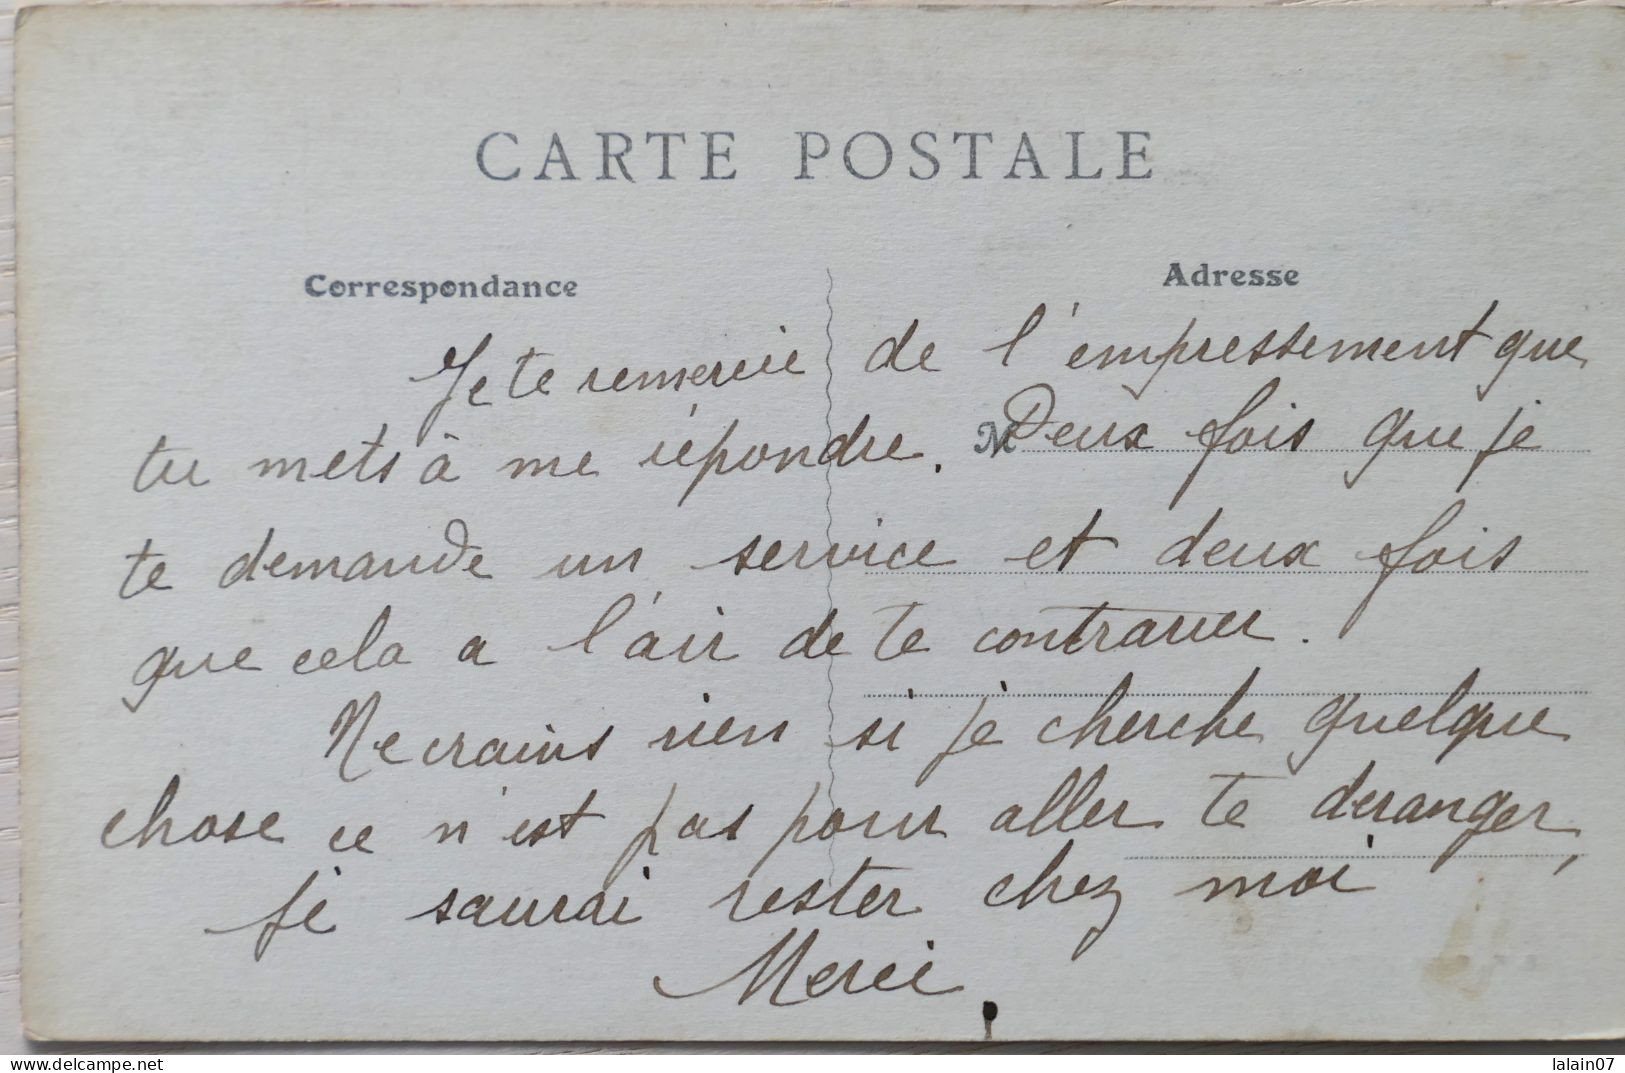 CARTE POSTALE
Correspondance
Adresse
Je te remercie de l'empressement que
tu mets à me répondre. M Deux fois que je
te demande un service et deux fois
que cela a l'air de te contrarier.
Ne crains rien si je cherche quelque
chose ce n'est pas pour aller te deranger,
je saurai rester chez moi
Merci.
www.delcampe.net
lalain07